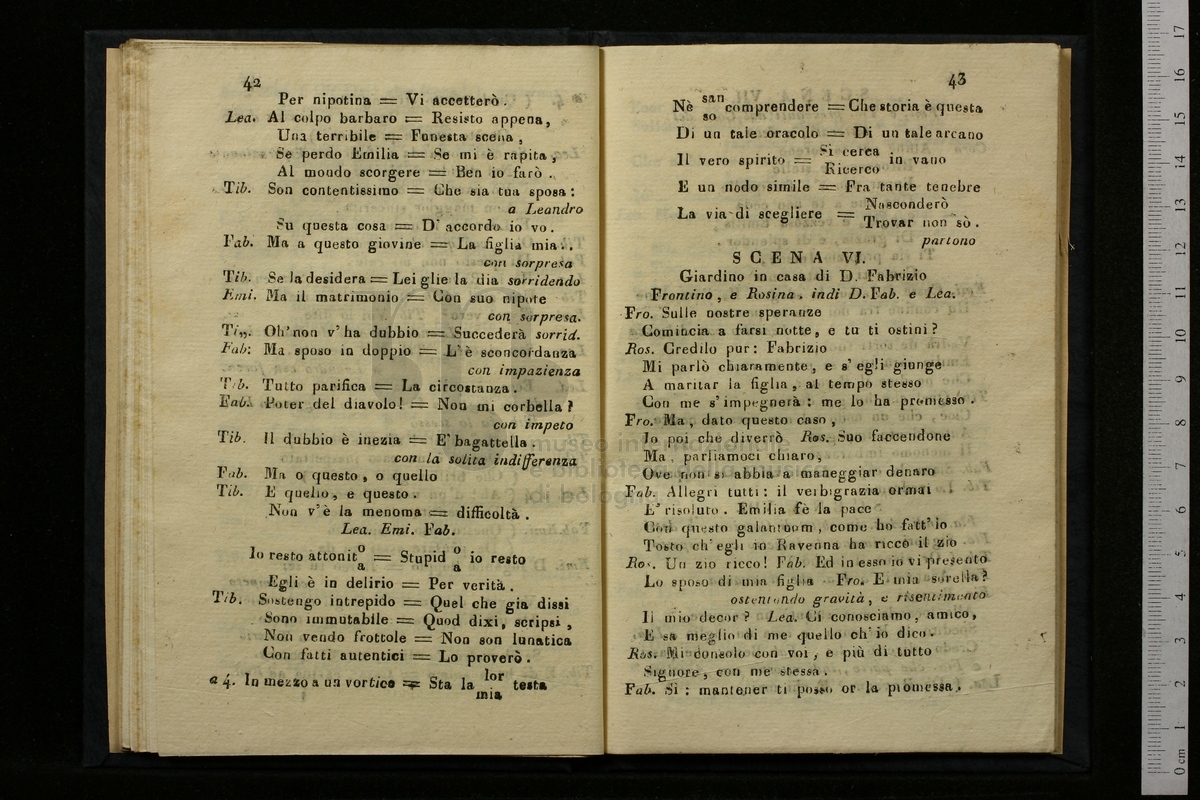 42
Per nipotina = Vi accetterò.
Lea. Al colpo barbaro = Resisto appena,
Una terribile = Funesta scena,
Se perdo Emilia = Se mi è rapita,
Al mondo scorgere = Ben io farò.
Tib. Son contentissimo = Che sia tua sposa:
a Leandro
Su questa cosa = D' accordo io vo.
Fab. Ma a questo giovine = La figlia mia..
con sorpresa
Tib. Se la desidera = Lei glie la dia sorridendo
Emi. Ma il matrimonio = Con suo nipote
con sorpresa.
Tib. Oh' non v' ha dubbio = Succederà sorrid.
Fab: Ma sposo in doppio = L' è sconcordanza
con impazienza
Tib. Tutto parifica = La circostanza.
Fab. Poter del diavolo! = Non mi corbella?
con impeto
Tib. Il dubbio è inezia = E' bagattella.
con la solita indifferenza
Fab. Ma o questo, o quello
Tib. E quello, e questo.
Non v' è la menoma = difficoltà.
Lea. Emi. Fab.
Io resto attonit o/a = Stupid o/a io resto
Egli è in delirio = Per verità.
Tib. Sostengo intrepido = Quel che gia dissi
Sono immutabile = Quod dixi, scripsi,
Non vendo frottole = Non son lunatica
Con fatti autentici = Lo proverò.
a 4. In mezzo a un vortice = Sta la lor/mia testa
43
Nè san/so comprendere = Che storia è questa
Di un tale oracolo = Di un tale arcano
Il vero spirito = Si cerca/Ricerco in vano
E un nodo simile = Fra tante tenebre
La via di scegliere = Nasconderò/Trovar non sò.
partono
SCENA VI.
Giardino in casa di D. Fabrizio
Frontino, e Rosina. indi D. Fab. e Lea.
Fro. Sulle nostre speranze
Comincia a farsi notte, e tu ti ostini?
Ros. Credilo pur: Fabrizio
Mi parlò chiaramente, e s' egli giunge
A maritar la figlia, al tempo stesso
Con me s' impegnerà: me lo ha promesso.
Fro. Ma, dato questo caso,
Io poi che diverrò Ros. Suo faccendone
Ma, parliamoci chiaro,
Ove non si abbia a maneggiar denaro
Fab. Allegri tutti: il verbigrazia ormai
E' risoluto. Emilia fè la pace
Con questo galantuom, come ho fatt' io
Tosto ch' egli in Ravenna ha riccò il zio
Ros. Un zio ricco! Fab. Ed in esso io vi presento
Lo sposo di mia figlia Fro. E mia sorella?
ostentando gravità, e risentimento
Il mio decor? Lea. Ci conosciamo, amico,
E sa meglio di me quello ch' io dico.
Ros. Mi consolo con voi, e più di tutto
Signore, con me stessa.
Fab. Si: mantener ti posso or la promessa.
museo internazionale
biblioteca della musica
di bologna
0 cm 1 2 3 4 5 6 7 8 9 10 11 12 13 14 15 16 17